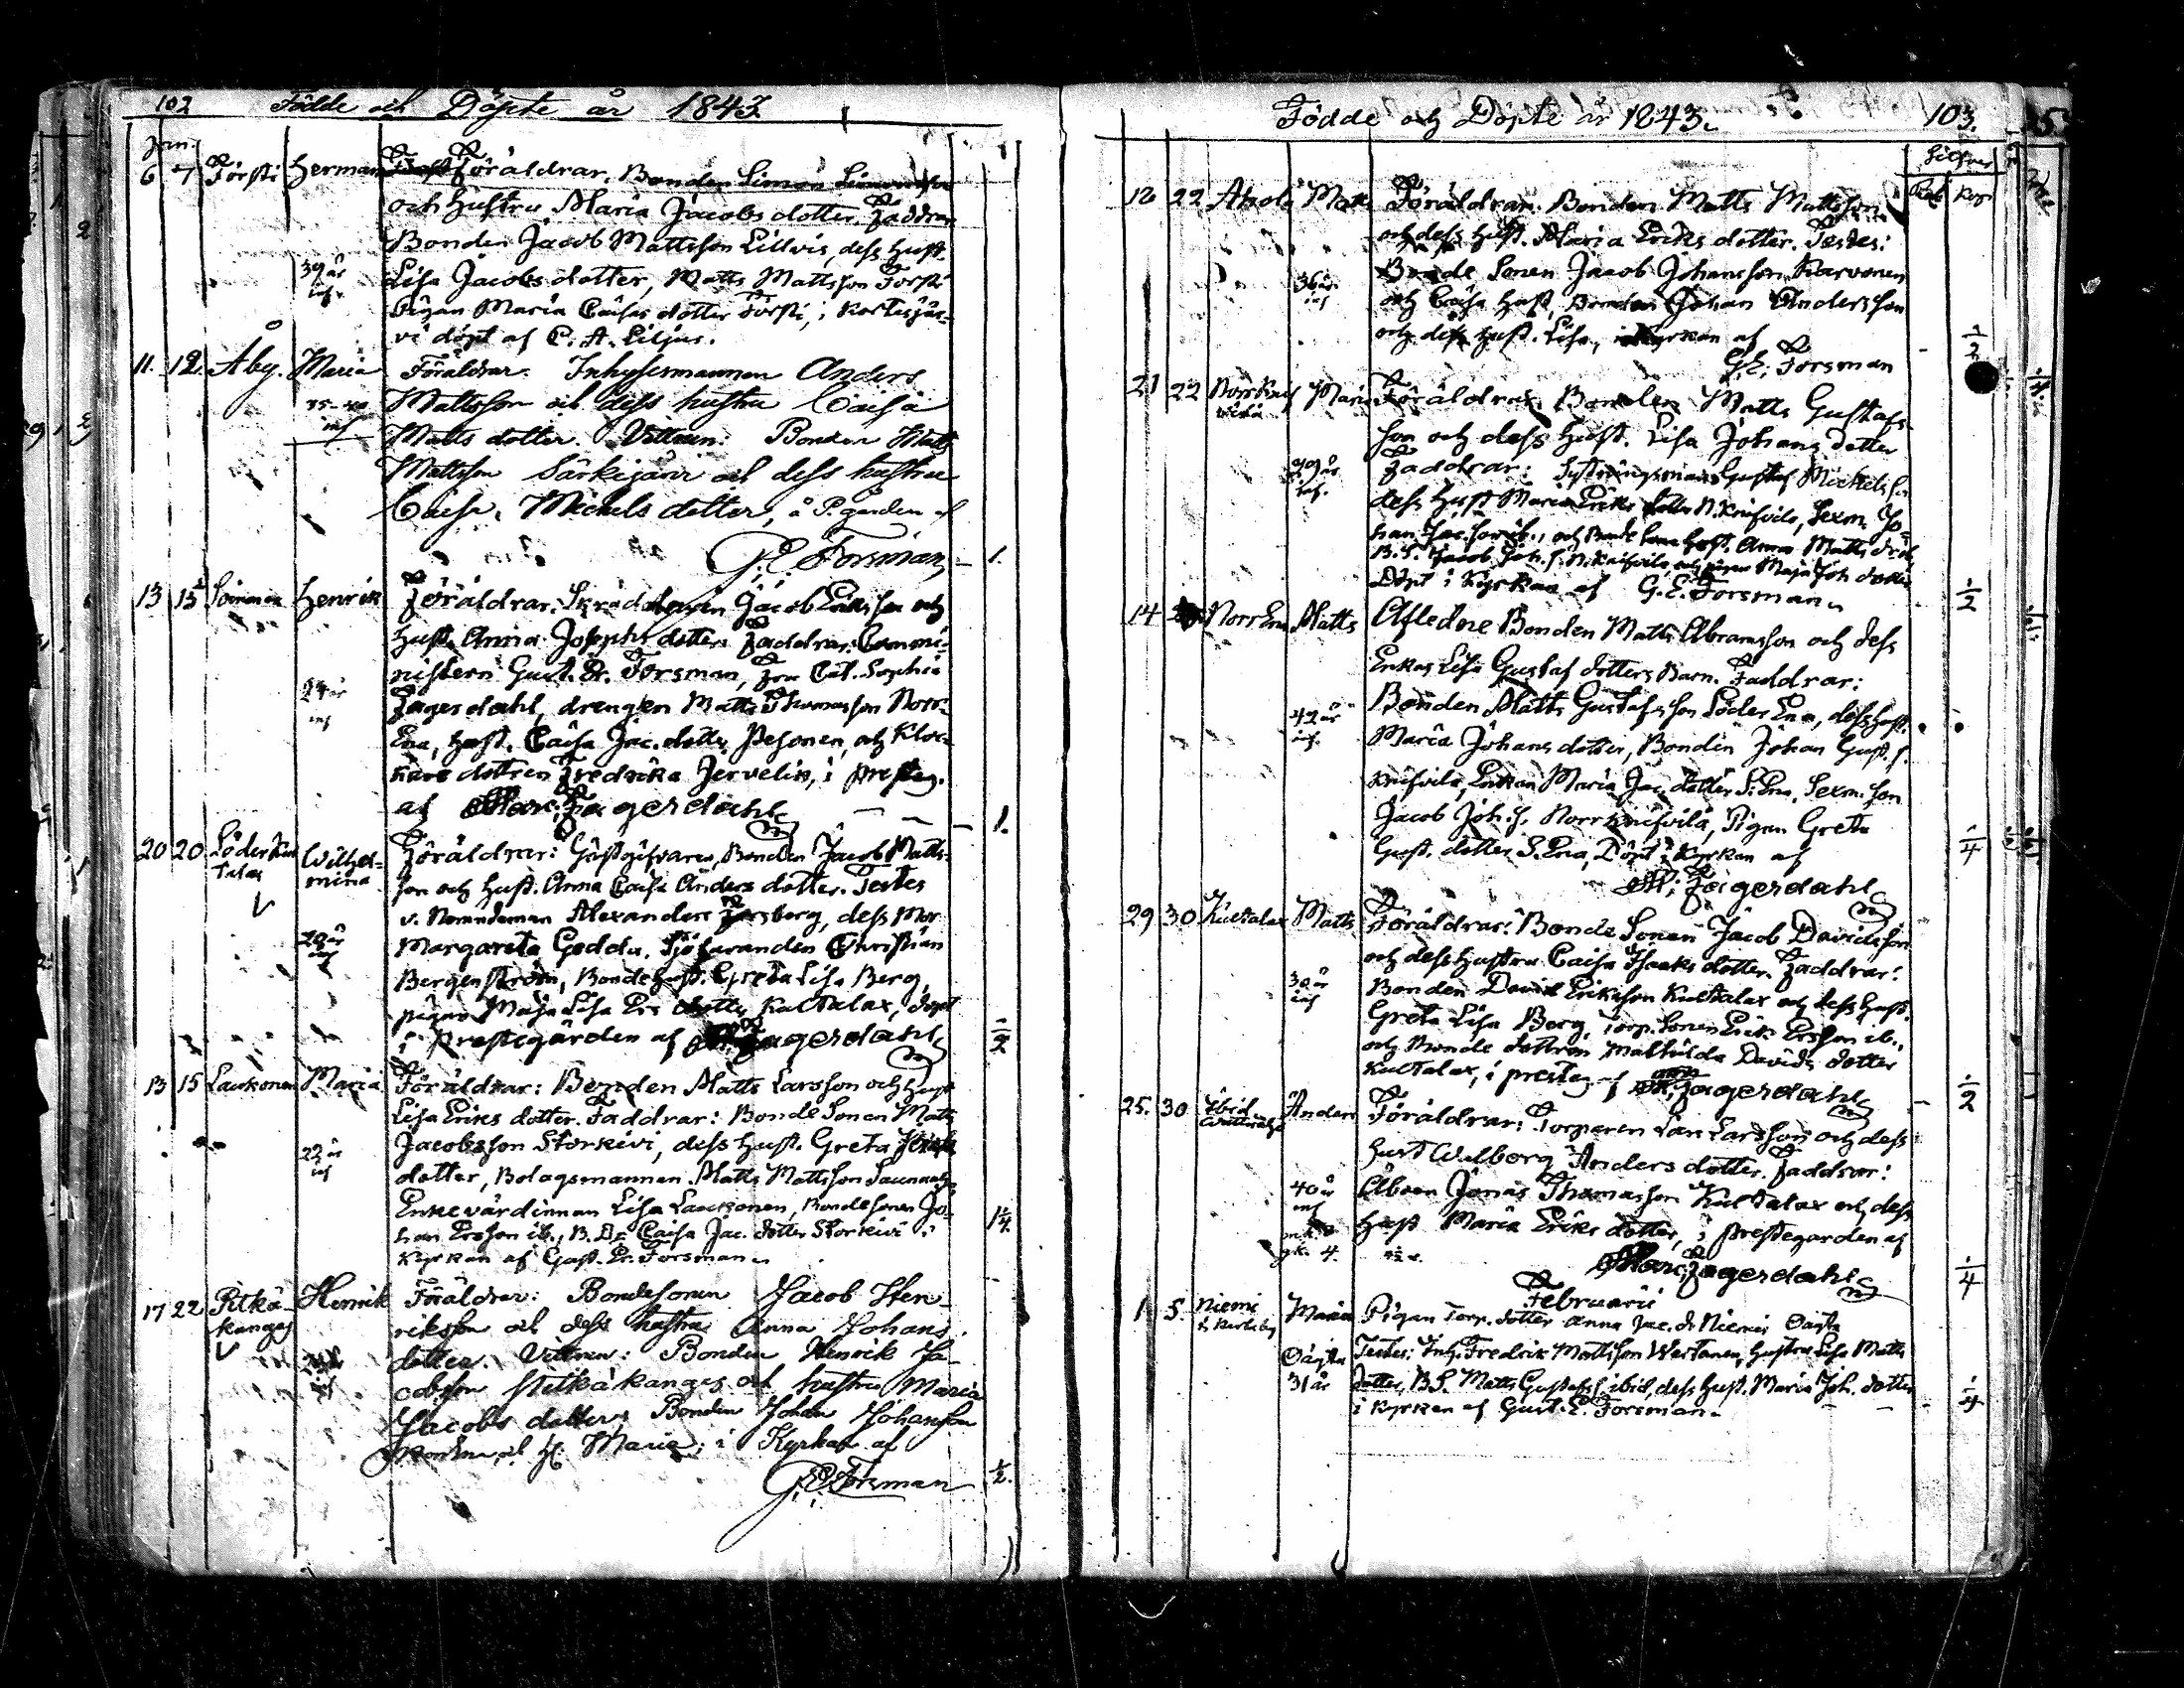 102 Födde och Döpte år 1843
Jan:
6 7 Försti Herman Föräldrar. Bonden Simon Simonsson
och Hustru Maria Jacobs dotter. Faddrar
Bonden Jacob Mattsson Lillvis, dess Hust.
39 år Lisa Jacobs dotter, Matts Mattsson Försti
Pigan Maria Caisas dotter Försti, i Kortesjär-
vi döpt af C. A. Liljus.
11. 12. Åbg. Maria Föräldrar. Inhysesmannen Anders
35-40 Mattsson och dess hustru Caisa
Matts dotter. Vittnen: Bonden Matts
Mattsson Särkijärvi och dess hustru
Caisa Michels dotter, å P.gården af
G. E. Forsman, 1.
13 15 Soinonen Henrik Föräldrar. Skräddaren Jacob Eriksson och
Hust. Anna Josephs dotter. Faddrar: Commi-
nistern Gust. Er. Forsman, Fru Cat. Sophia
24 år inf Fagerdahl, drengen Matts Thomasson Norr-
Ena, Hust. Caisa Jac. dotter Pesonen, och Kloc-
kare dottren Fredrika Jervelin, i presteg.
af Marc. Fagerdahl 1.
20 20 Söder Kul Wilhel- Föräldrar: Gästgifvaren, Bonden Jacob Matts-
talax mina son och Hust. Anna Caisa Anders dotter. Testes
v. Nemndeman Alexander Forsberg, dess Mor
29 år inf Margareta Gedda, Sjöfaranden Christian
Bergenström, Bonde Hust. Greta Lisa Berg,
pigan Maja Lisa Ers dotter Kultalax, döpt
i Prestegården af M. Fagerdahl 1/2
13 15 Laukonen Maria Föräldrar: Bonden Matts Larsson och Hust
Lisa Eriks dotter. Faddrar: Bonde Sonen Matts
22 år inf Jacobsson Storkivi, dess Hust. Greta
dotter, Bolagsmannen Matts Mattsson
Enkevärdinnan Lisa Laukonen, Bondesonen Jo-
han Ersson ib., B. D. Caisa Jac. dotter Storkivi i 1/4
Kyrkan af Gust. Er. Forsman
17 22 Pitkä- Henrik Föräldrar: Bondesonen Jacob Hen-
kangas riksson och dess hustru Anna Johans
dotter. Vittnen: Bonden Henrik Ja-
cobsson Pitkäkangas och hustru Maria
Jacobs dotter, Bonden Johan Johansson
och H. Maria; i Kyrkan af
G. E. Forsman 1/2.
Födde och Döpte år 1843. 103.
Silfver
Rub Kop
18 22 Ahola Matts Föräldrar: Bonden Matts Mattsson
och dess Hust. Maria Eriks dotter. Testes:
36 år inf Bonde Sonen Jacob Johansson Karvonen
och Caisa Hust, Bonden Johan Andersson
och dess Hust. Lisa, i Kyrkan af
G. E. Forsman 1/2
21 22 Norrknif- Maria Föräldrar: Bonden Matts Gustafs-
vila son och dess Hust. Lisa Johans dotter
29 år inf. Faddrar: Gustaf Michelsson
dess Hust Maria Eriks dotter N. Knifvila, Sexm. Jo-
han Jac. son ib., och Bonde Hust. Anna Matts dott,
B. S. Jacob Joh. s. N. Knifvila, och pigan Maja Joh dotter
Döpt i Kyrkan af G. E. Forsman 1/2
14 Norr Ena Matts Afledne Bonden Matts Abramsson och dess
Enkas Lisa Gustafs dotters Barn. Faddrar:
42 år inf. Bonden Matts Gustafsson Söder Ena, dess Hust.
Maria Johans dotter, Bonden Johan Gust. s.
Knifvila, Enkan Maria Jac. dotter S. Ena, Sexm. son
Jacob Joh. s. Norrknifvila, Pigan Greta
Gust. dotter S. Ena, Döpt i Kyrkan af 1/4
M. Fagerdahl
29 30 Kultalax Matts Föräldrar: Bonde Sonen Jacob Davidsson
och dess Hustru Caisa Isaaks dotter. Faddrar:
30 år inf Bonden David Eriksson Kultalax och dess Hust.
Greta Lisa Berg, Torp. Sonen Erik Ersson ib.,
och Bonde dottren Mathilda Davids dotter
Kultalax, i presteg. af M. Fagerdahl 1/2
25. 30 Ibid Anders Föräldrar: Torparen Lars Larsson och dess
Hust Walborg Anders dotter. Faddrar:
40 år inf Åboen Jonas Thomasson Kultalax och dess
Hust Maria Eriks dotter, i prestegården af
gk. 4. Marc. Fagerdahl 1/4
Februarii
1. 5. Niemi Maria Pigan Torp. dotter Anna Jac. dr Niemis Oägta
Oägta Testes: Inh. Fredrik Mattsson Wertanen, Hustru Lisa Matts
31 år dotter, B S. Matts Gustafs s. ibid, dess Hust. Maria Joh. dotter
i Kyrkan af Gust. E. Forsman. 1/4